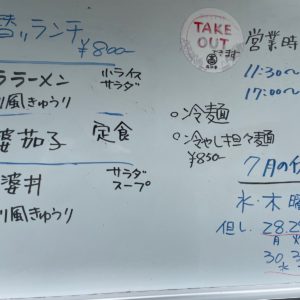 替りランチ
¥800
ララーメン 小ライス
サラダ
風きゅうり
婆茄子 定食
婆丼 サラダ
スープ
風きゅうり
TAKE
OUT
できます
営業時
11:30~
17:00~
○冷麺
○冷やし担々麺
¥850
7月の
水・木曜
但し、28,29
月 火
30,3
水